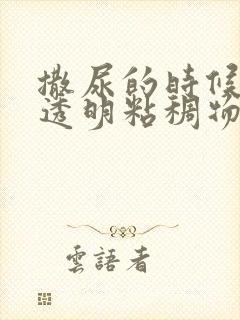 撒尿的时候
透明粘稠物
雲語者